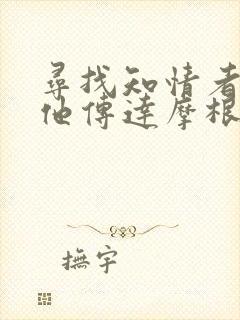 尋找知情者
他傳達摩根
撫宇